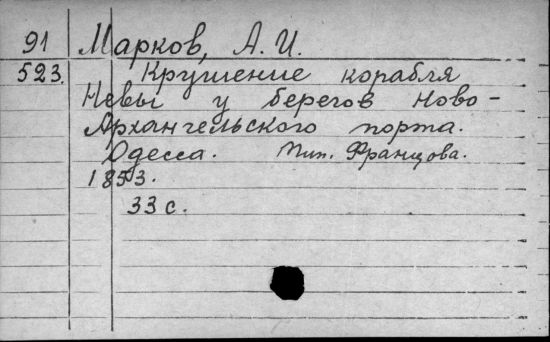 91 Марков, А. И.
523. Крушение корабля
Невы у берегов Ново-
Архангельского порта.
Одесса. Тип. Францова.
1853.
33 с.